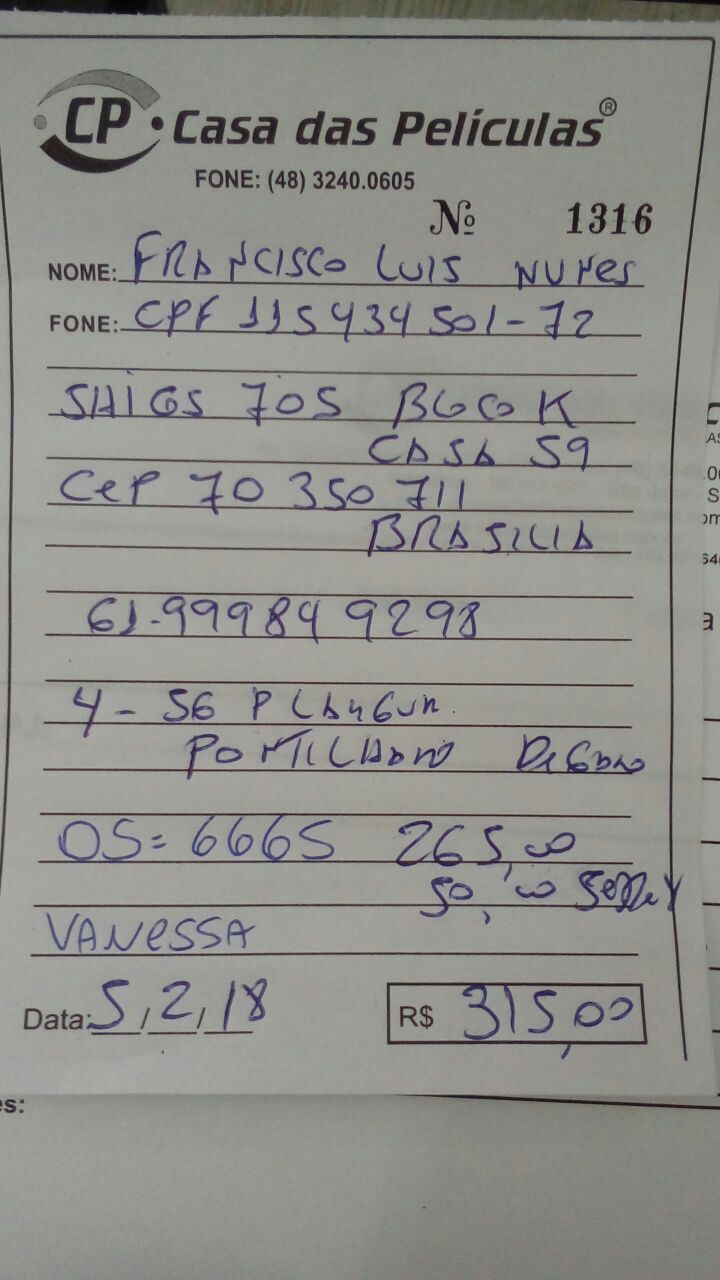 CP • Casa das Películas ®
FONE: (48) 3240.0605
Nº 1316
NOME: FRANCISCO LUIS NUNES
FONE: CPF 115434501-72
SHIGS 705 BLOCO K
CASA 59
CEP 70 350 711
BRASILIA
61-99984 9298
4 - 56
OS= 6665 265,00
50,00
VANESSA
Data: 5/2/18 R$ 315,00
es: